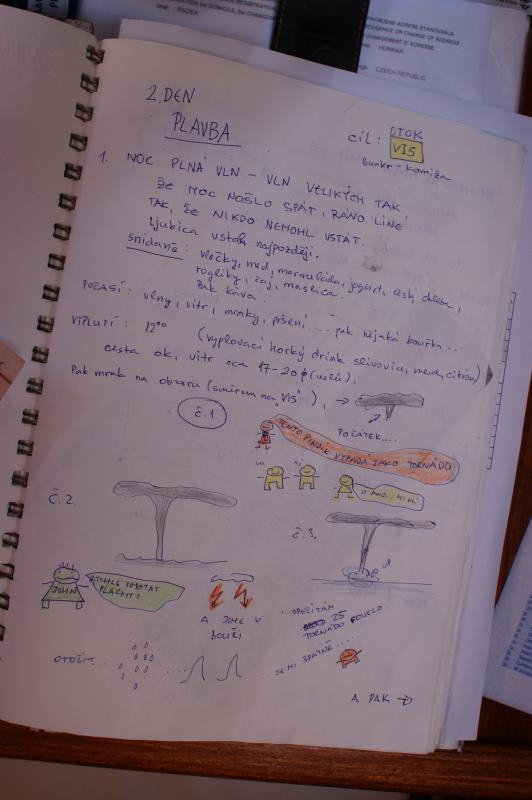 RADEK
HUNKAR
CZECH REPUBLIC
2. DEN
PLAVBA
CÍL: OTOK
VIS
Bunkr - Komiža
1. NOC PLNÁ VLN - VLN VELIKÝCH TAK
ŽE MOC NEŠLO SPÁT, RÁNO LÍNÉ
TAK, ŽE NIKDO NEMOHL VSTÁT.
Ljubica vstala nejpozději.
Snídaně: vločky, med, marmeláda, jogurt, český chleba,
rohlíky, čaj, maslíca.
Pak káva.
POČASÍ: vlny, vítr, mraky, pršení.... pak nějaká bouřka...
VYPLUTÍ: 12⁰⁰ (vyplovací horký drink slivovice, med, citrón)
cesta ok, vítr cca 17-20 (uzlů).
Pak mrak na obzoru (směrem na "VIS"), →
č.1
POČÁTEK....
TENTO MRAK VYPADÁ JAKO TORNÁDO
O ANO HIHI
Č.2.
č.3.
JOHN
RYCHLE SMOTAT
PLACHTY!
A JSME V
BOUŘI
TORNÁDO
25
JE MI ŠPATNĚ....
A PAK →